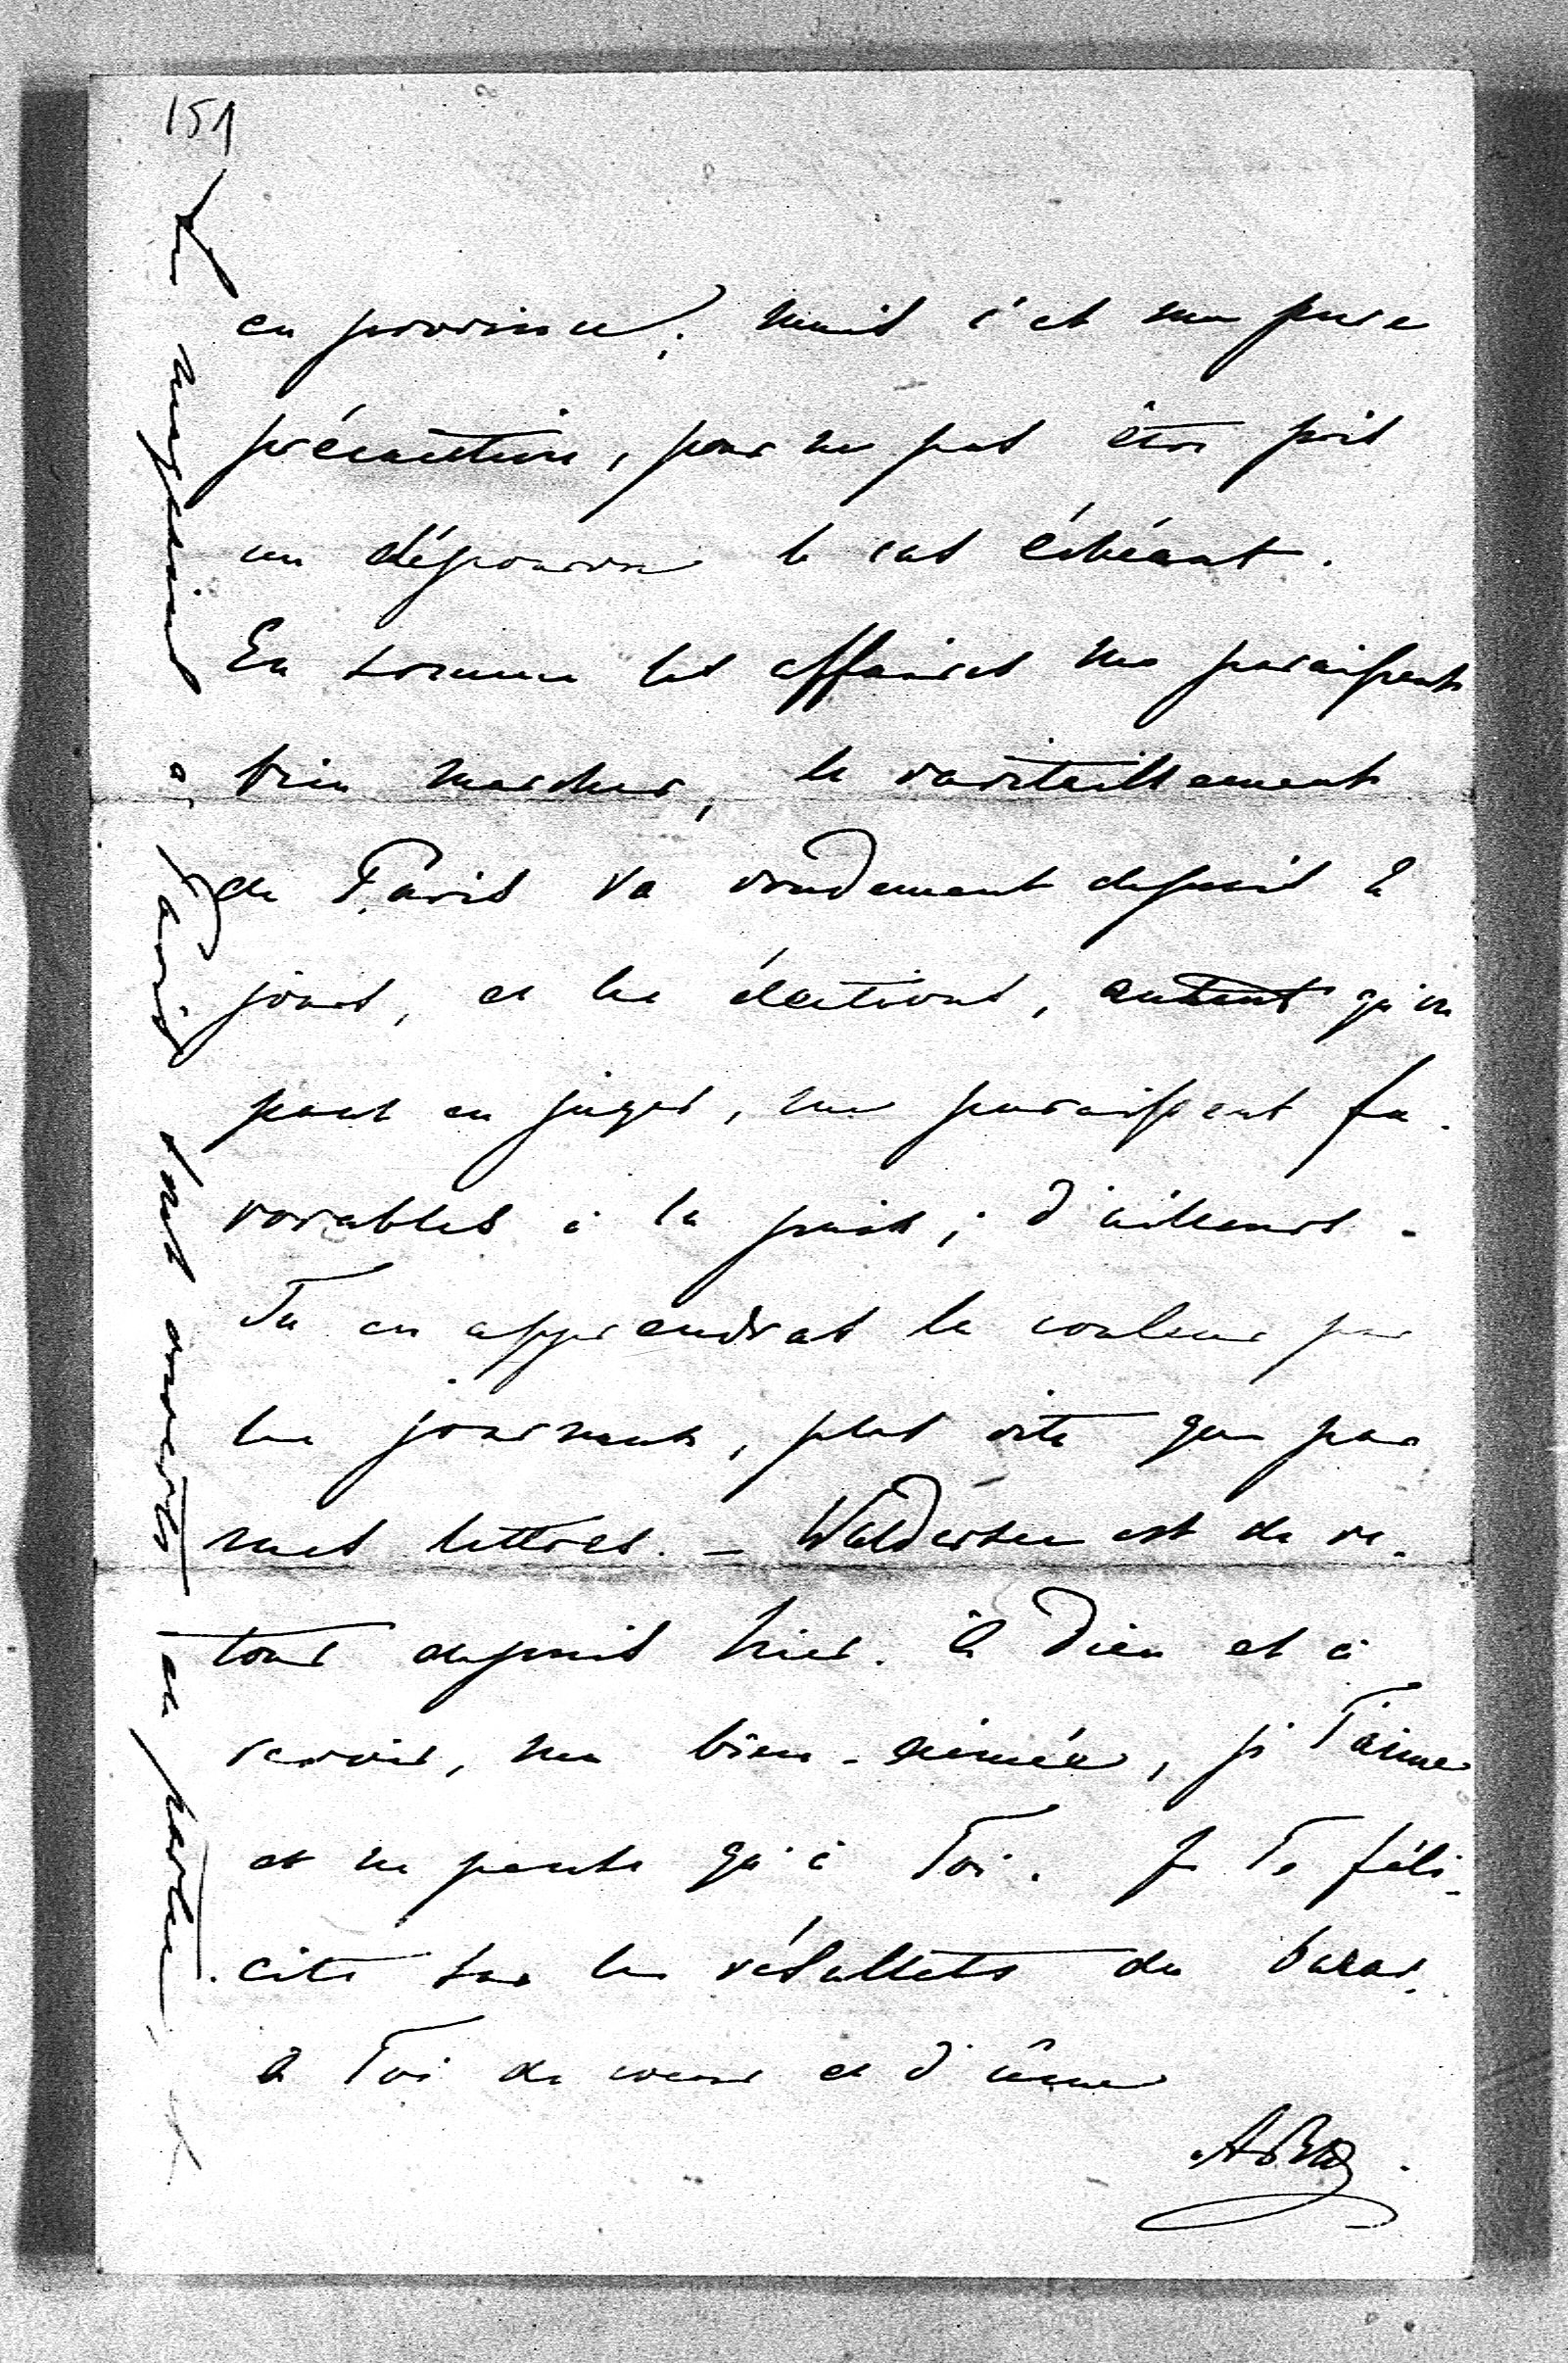 151
en province; mais c'est ma pure
précaution, pour ne pas être pris
au dépourvu le cas échéant.
En somme les affaires me paraissent
bien marcher, le ravitaillement
de Paris va rondement depuis 2
jours, et les élections, autant qu'on
peut en juger, me paraissent fa-
vorables à la paix; d'ailleurs -
Tu en apprendras la couleur par
les journaux, plus vite que par
mes lettres. - Waldersee est de re-
tour depuis hier. à Dieu et à
revoir, ma bien-aimée, je T'aime
et ne pense qu'à Toi. Je Te féli-
cite sur les résultats du bazar.
à Toi de cœur et d'âme
Les magasins à Paris sont ouverts en partie.